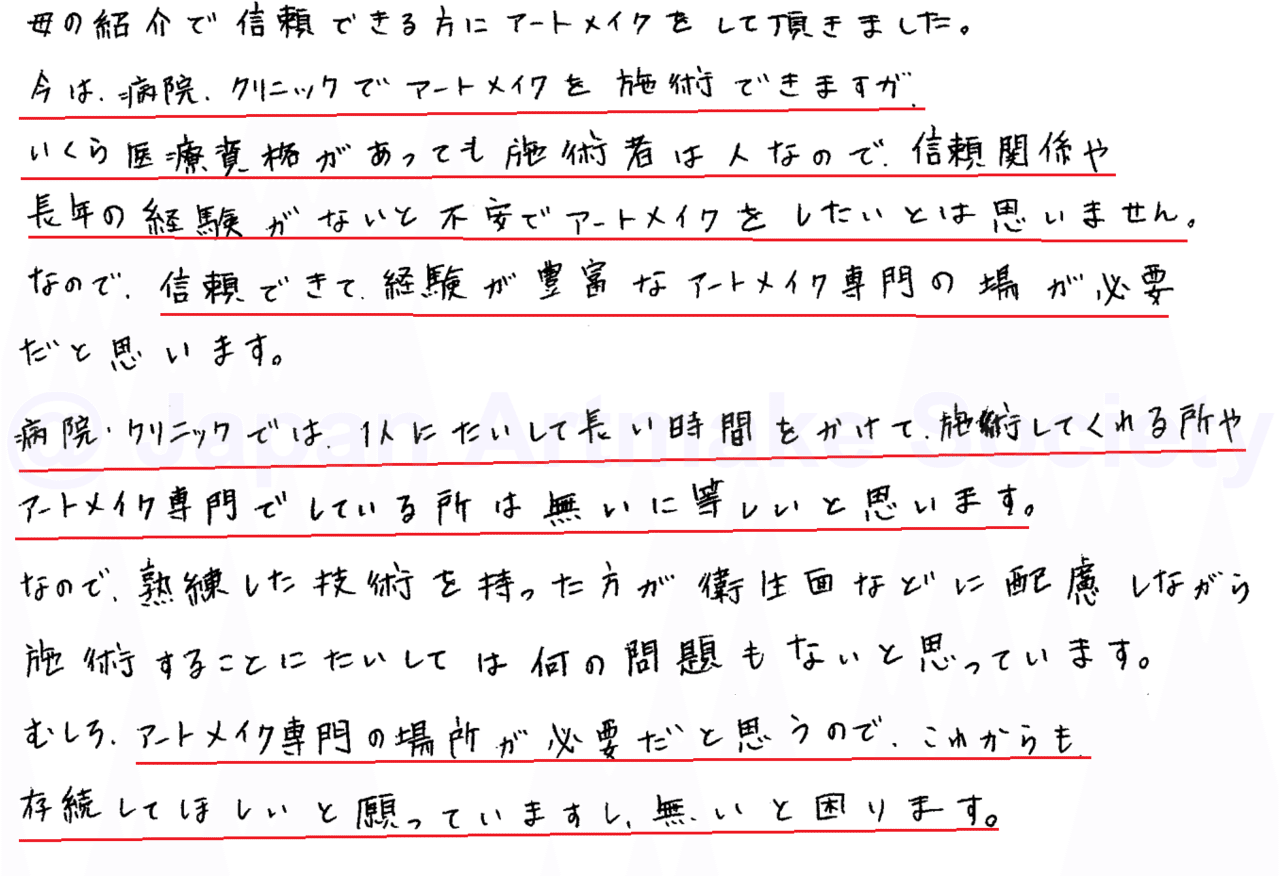 母の紹介で信頼できる方にアートメイクをして頂きました。
今は、病院、クリニックでアートメイクを施術できますが、
いくら医療資格があっても施術者は人なので、信頼関係や
長年の経験がないと不安でアートメイクをしたいとは思いません。
なので、信頼できて、経験が豊富なアートメイク専門の場が必要
だと思います。
病院・クリニックでは、1人にたいして長い時間をかけて、施術してくれる所や
アートメイク専門でしている所は無いに等しいと思います。
なので、熟練した技術を持った方が衛生面などに配慮しながら
施術することにたいしては何の問題もないと思っています。
むしろ、アートメイク専門の場所が必要だと思うので、これからも、
存続してほしいと願っていますし、無いと困ります。
@ Japan Artmake Society